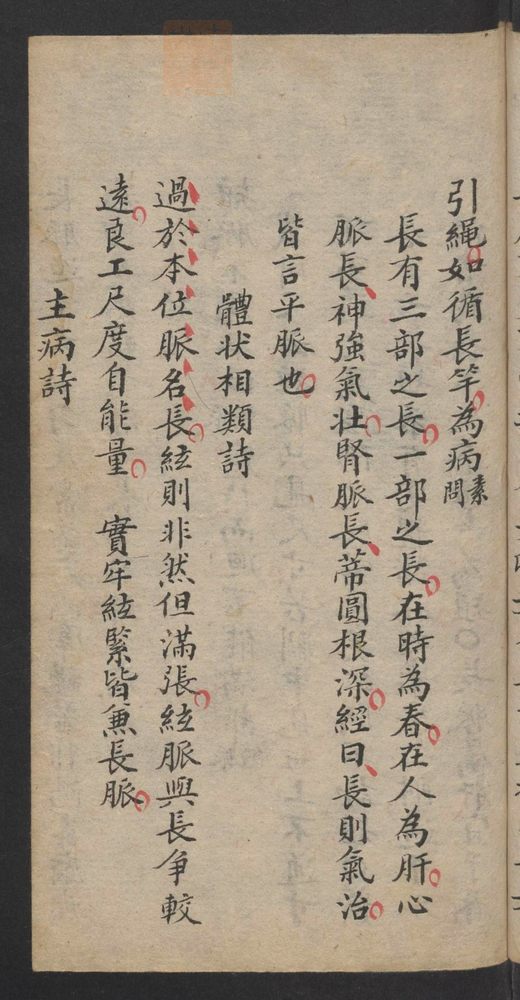 引繩如循長竿為病素問
長有三部之長一部之長在時為春在人為肝心
脈長神強氣壯腎脈長蒂圓根深經曰長則氣治
皆言平脈也
體状相類詩
過於本位脈名長絃則非然但滿張絃脈與長争較
遠良工尺度自能量 實牢絃緊皆兼長脈
主病詩